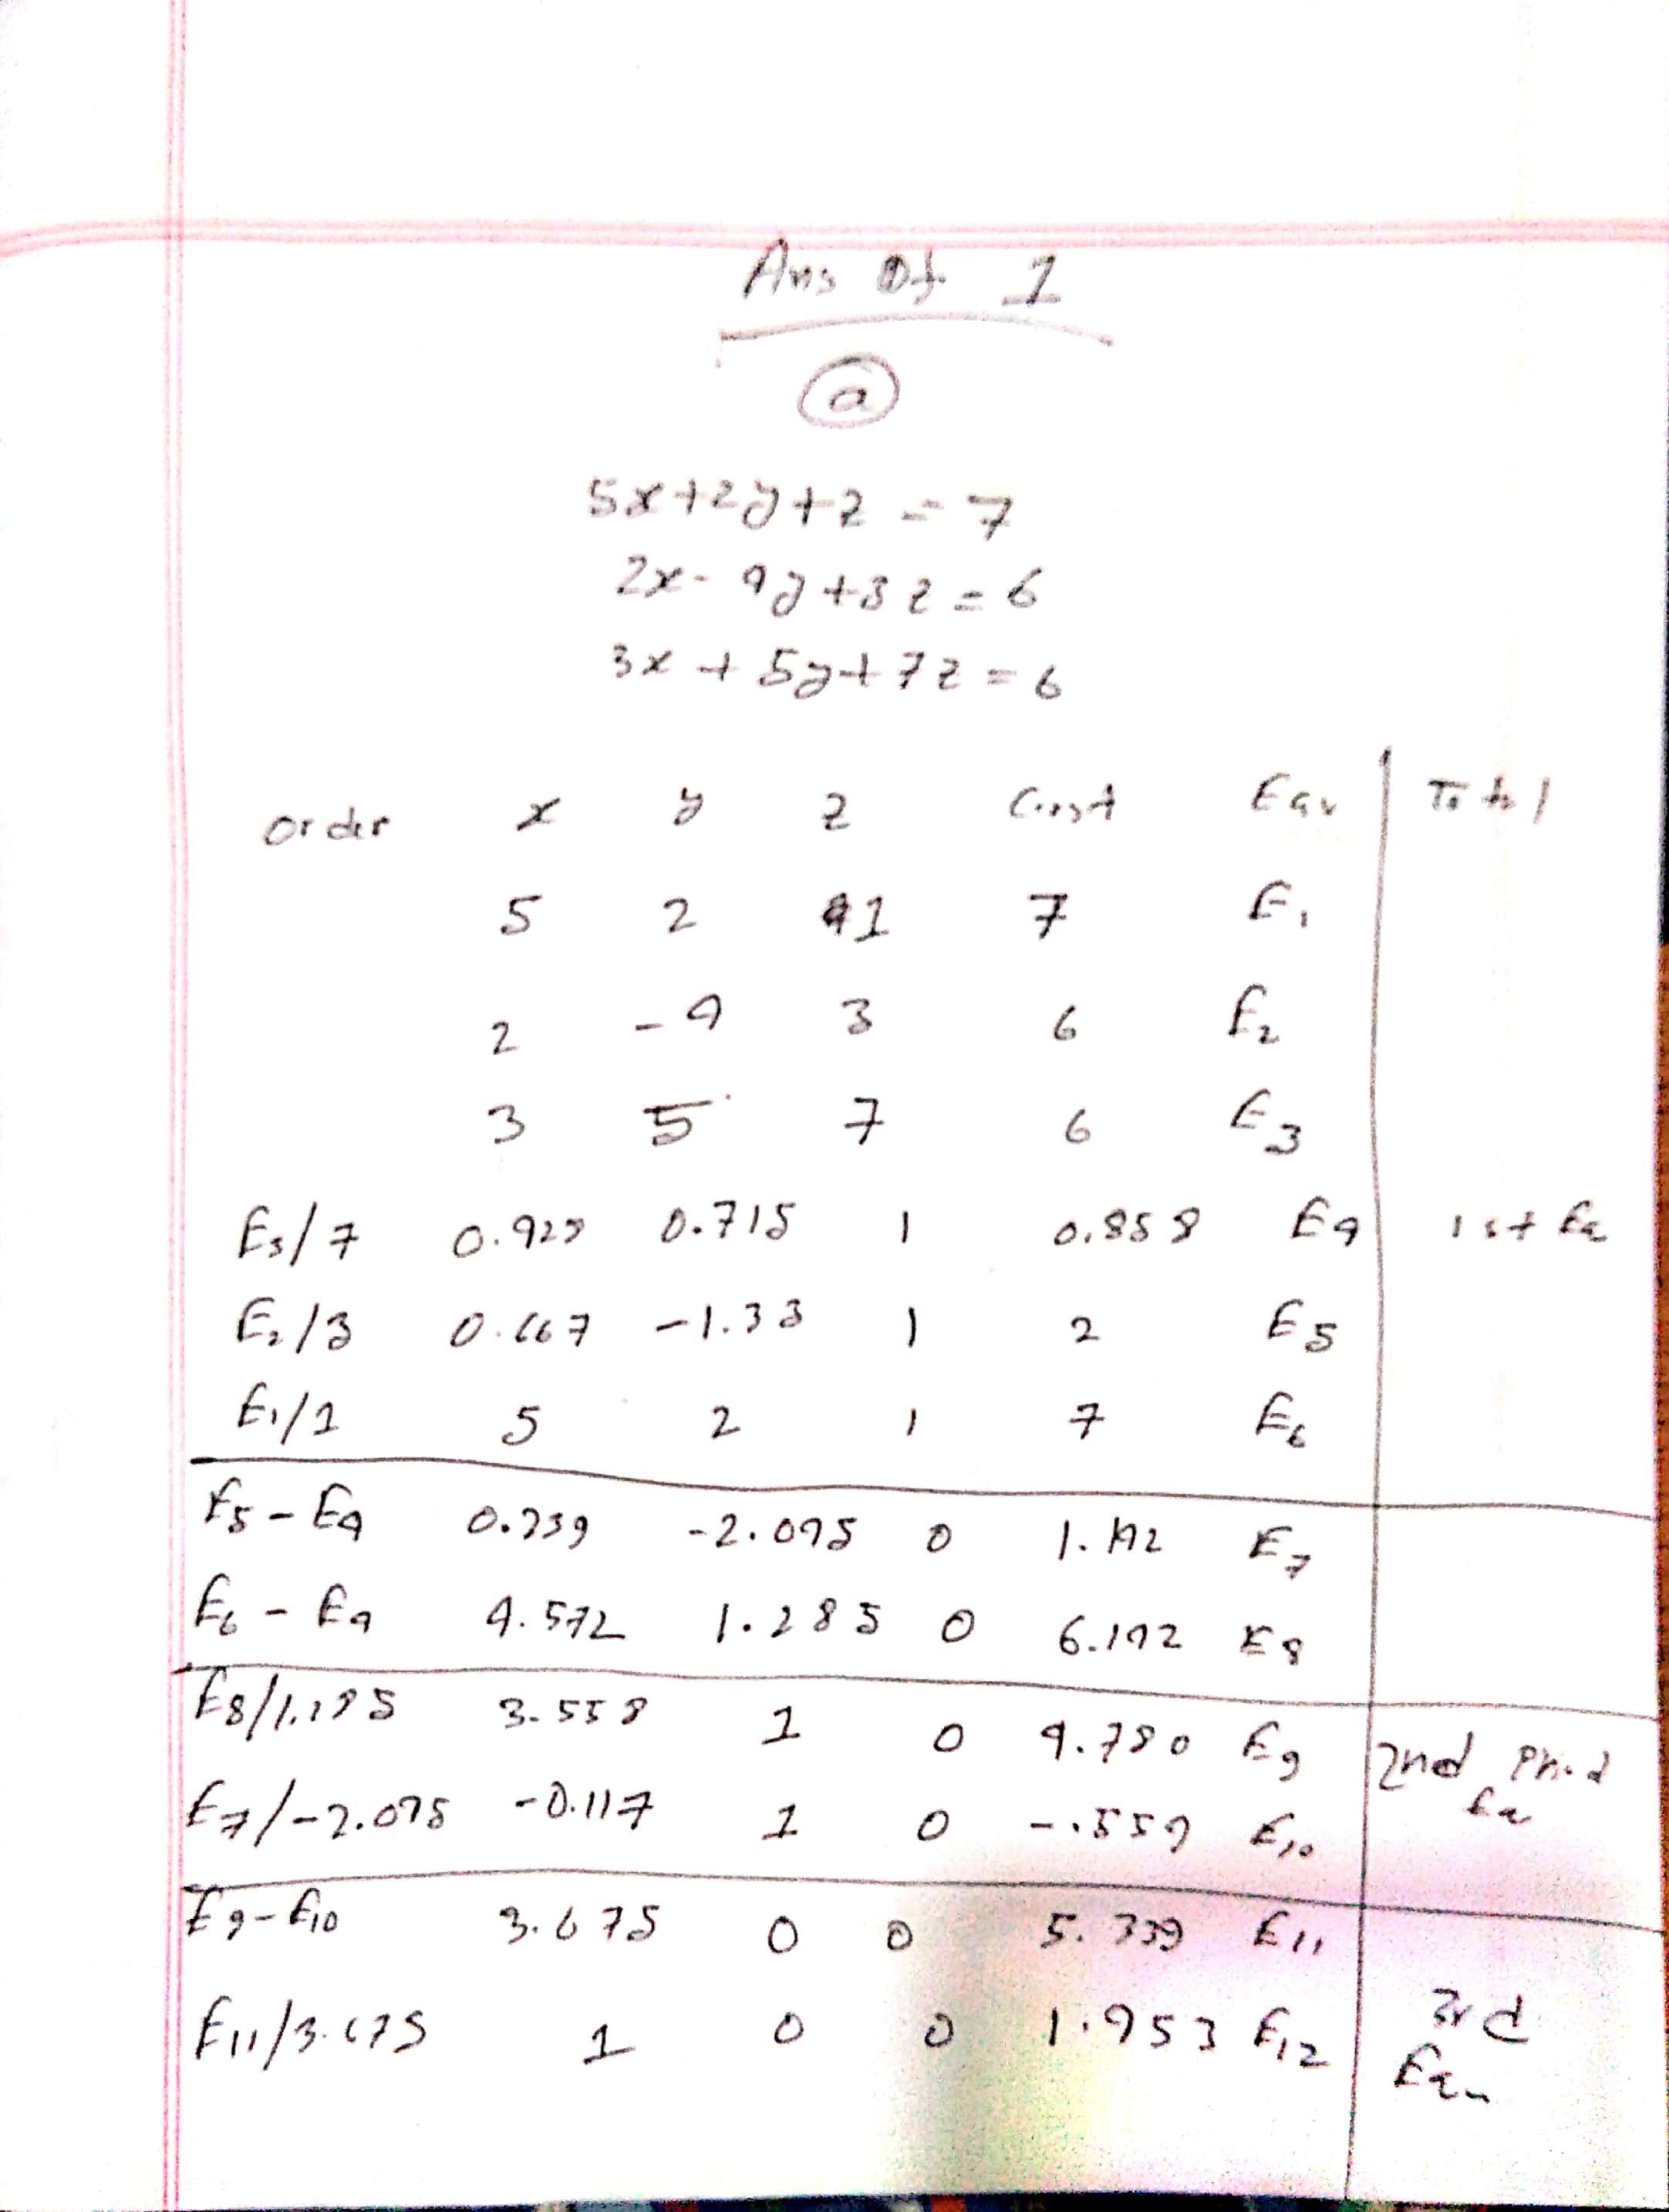 Ans Of 1
a
5x+2y+z = 7
2x-4y+3z=6
3x+5y+7z=6
order x y z Const Equ Total
5 2 1 7 E1
2 -4 3 6 E2
3 5 7 6 E3
E3/7 0.429 0.715 1 0.858 E4 1st Eq
E2/3 0.667 -1.33 1 2 E5
E1/1 5 2 1 7 E6
E5-E4 0.239 -2.045 0 1.142 E7
E6-E4 4.572 1.285 0 6.142 E8
E8/1.285 3.558 1 0 4.780 E9 2nd
E7/-2.045 -0.117 1 0 -.559 E10 Eq
E9-E10 3.675 0 0 5.339 E11
E11/3.675 1 0 0 1.453 E12 3rd
Equ